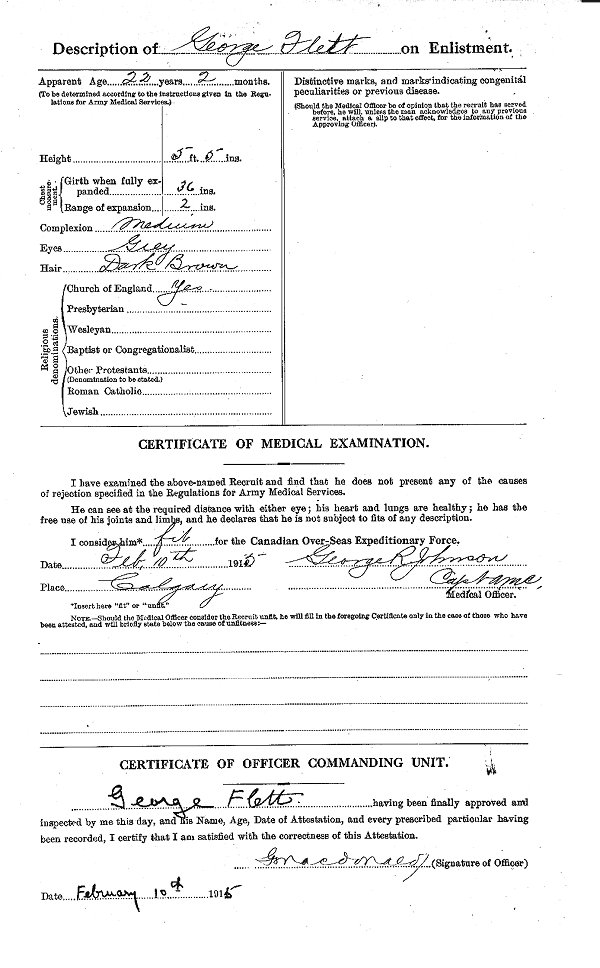 Description of George Flett on Enlistment.
Apparent Age 22 years 2 months.
(To be determined according to the instructions given in the Regulations for Army Medical Services.)
Height 5 ft. 5 ins.
Chest measurement.
Girth when fully expanded 36 ins.
Range of expansion 2 ins.
Complexion Medium
Eyes Grey
Hair Dark Brown
Religious denominations.
Church of England Yes
Presbyterian
Wesleyan
Baptist or Congregationalist
Other Protestants
(Denomination to be stated.)
Roman Catholic
Jewish
Distinctive marks, and marks indicating congenital
peculiarities or previous disease.
(Should the Medical Officer be of opinion that the recruit has served
before, he will, unless the man acknowledges to any previous
service, attach a slip to that effect, for the information of the
Approving Officer).
CERTIFICATE OF MEDICAL EXAMINATION.
I have examined the above-named Recruit and find that he does not present any of the causes
of rejection specified in the Regulations for Army Medical Services.
He can see at the required distance with either eye; his heart and lungs are healthy; he has the
free use of his joints and limbs, and he declares that he is not subject to fits of any description.
I consider him* fit for the Canadian Over-Seas Expeditionary Force.
Date Feb. 10th 1915 George R Johnson
Place Calgary Capt AMC
Medical Officer.
*Insert here "fit" or "unfit."
NOTE.—Should the Medical Officer consider the Recruit unfit, he will fill in the foregoing Certificate only in the case of those who have
been attested, and will briefly state below the cause of unfitness:—
CERTIFICATE OF OFFICER COMMANDING UNIT.
George Flett. having been finally approved and
inspected by me this day, and his Name, Age, Date of Attestation, and every prescribed particular having
been recorded, I certify that I am satisfied with the correctness of this Attestation.
Macdonald (Signature of Officer)
Date February 10th 1915